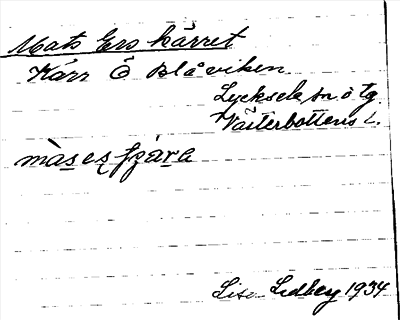 Mats Ers kärret
Kärr Ö Blåviken
Lycksele sn o tg.
Västerbottens l.
Lisa Lidberg 1934